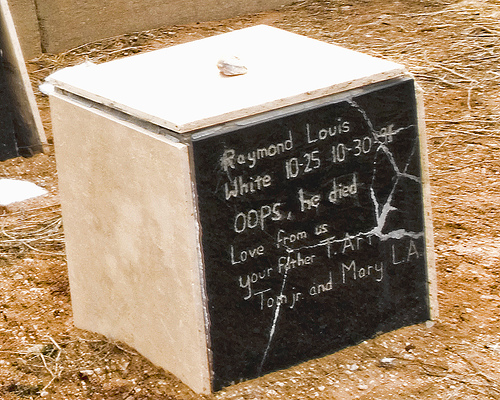 Raymond Louis
White 10-25 10-30-98
OOPS, he died
Love from us
your Father T. Art
Tom jr. and Mary L.A.